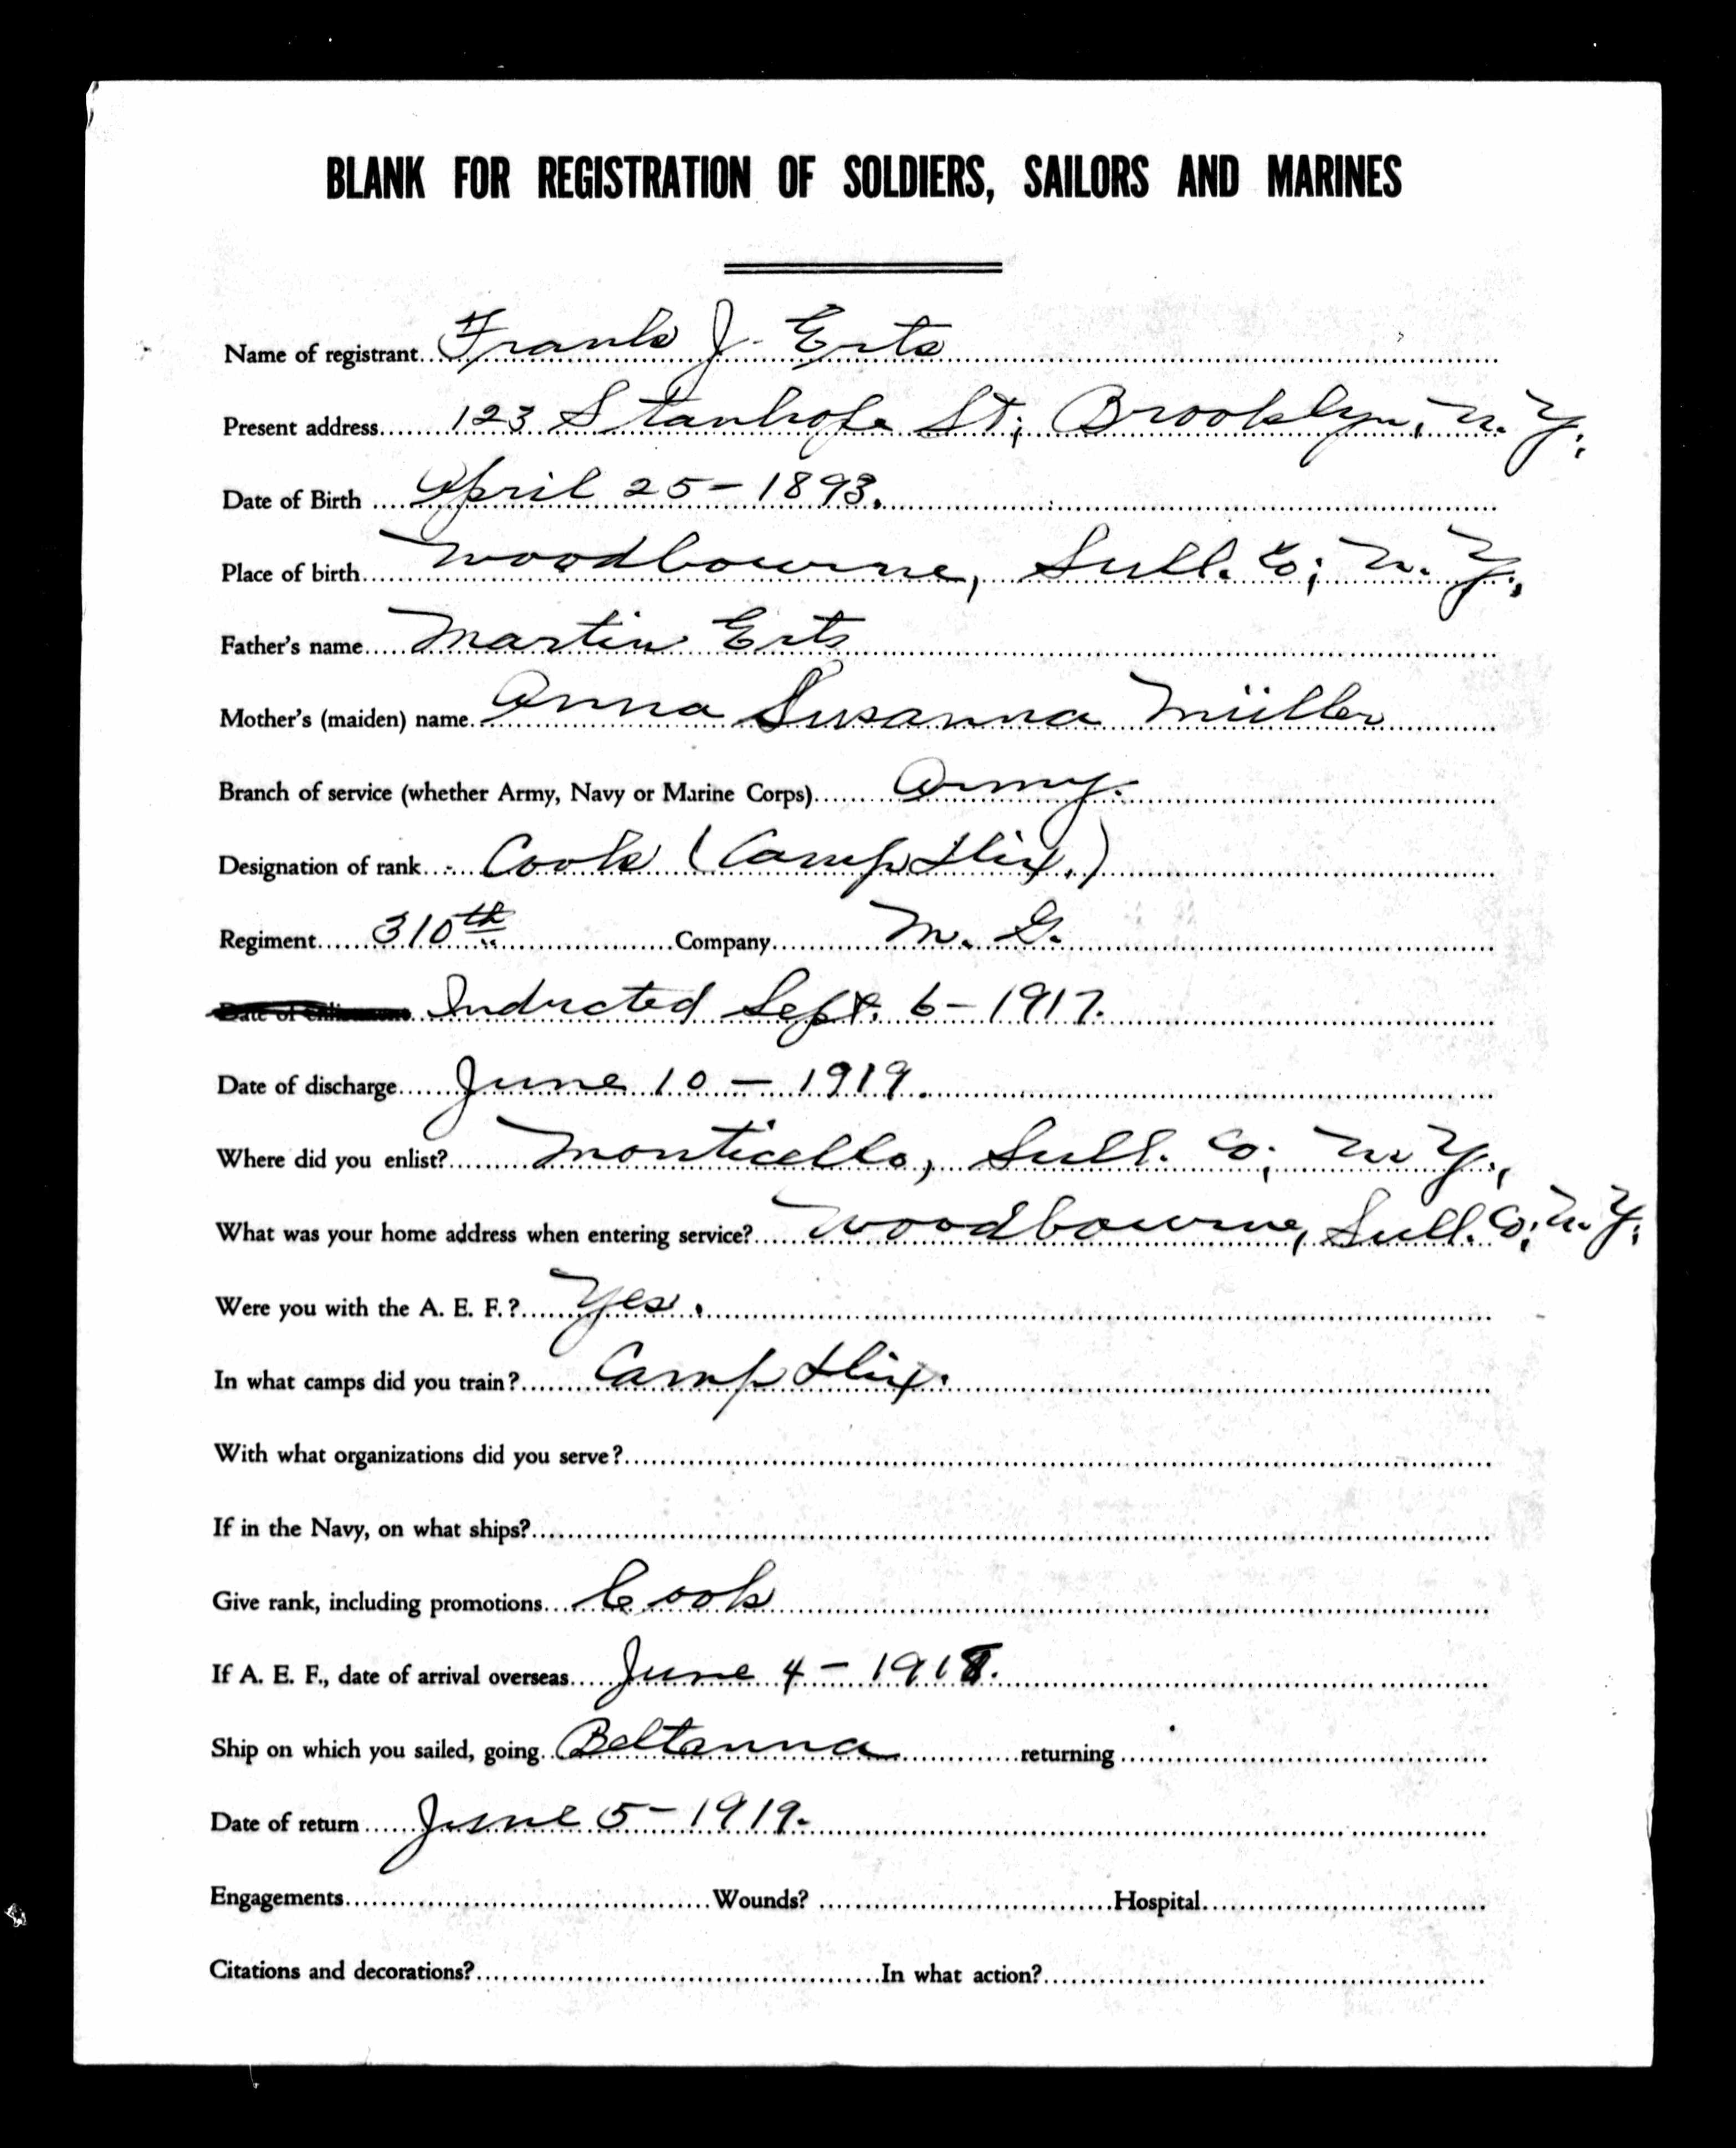 BLANK FOR REGISTRATION OF SOLDIERS, SAILORS AND MARINES
Name of registrant Frank J. Erts
Present address 123 Stanhope St; Brooklyn, N. Y.
Date of Birth April 25 - 1893.
Place of birth Woodbourne, Sull. Co; N. Y.
Father's name Martin Erts
Mother's (maiden) name Anna Susanna Müller
Branch of service (whether Army, Navy or Marine Corps) Army.
Designation of rank Cook (Camp Dix.)
Regiment 310th Company M. G.
Date of enlistment Inducted Sept. 6 - 1917.
Date of discharge June 10 - 1919.
Where did you enlist? Monticello, Sull. Co; N. Y.,
What was your home address when entering service? Woodbourne, Sull. Co; N. Y.
Were you with the A. E. F.? Yes.
In what camps did you train? Camp Dix.
With what organizations did you serve?
If in the Navy, on what ships?
Give rank, including promotions Cook
If A. E. F., date of arrival overseas June 4 - 1918.
Ship on which you sailed, going Beltanna returning
Date of return June 5 - 1919.
Engagements Wounds? Hospital
Citations and decorations? In what action?